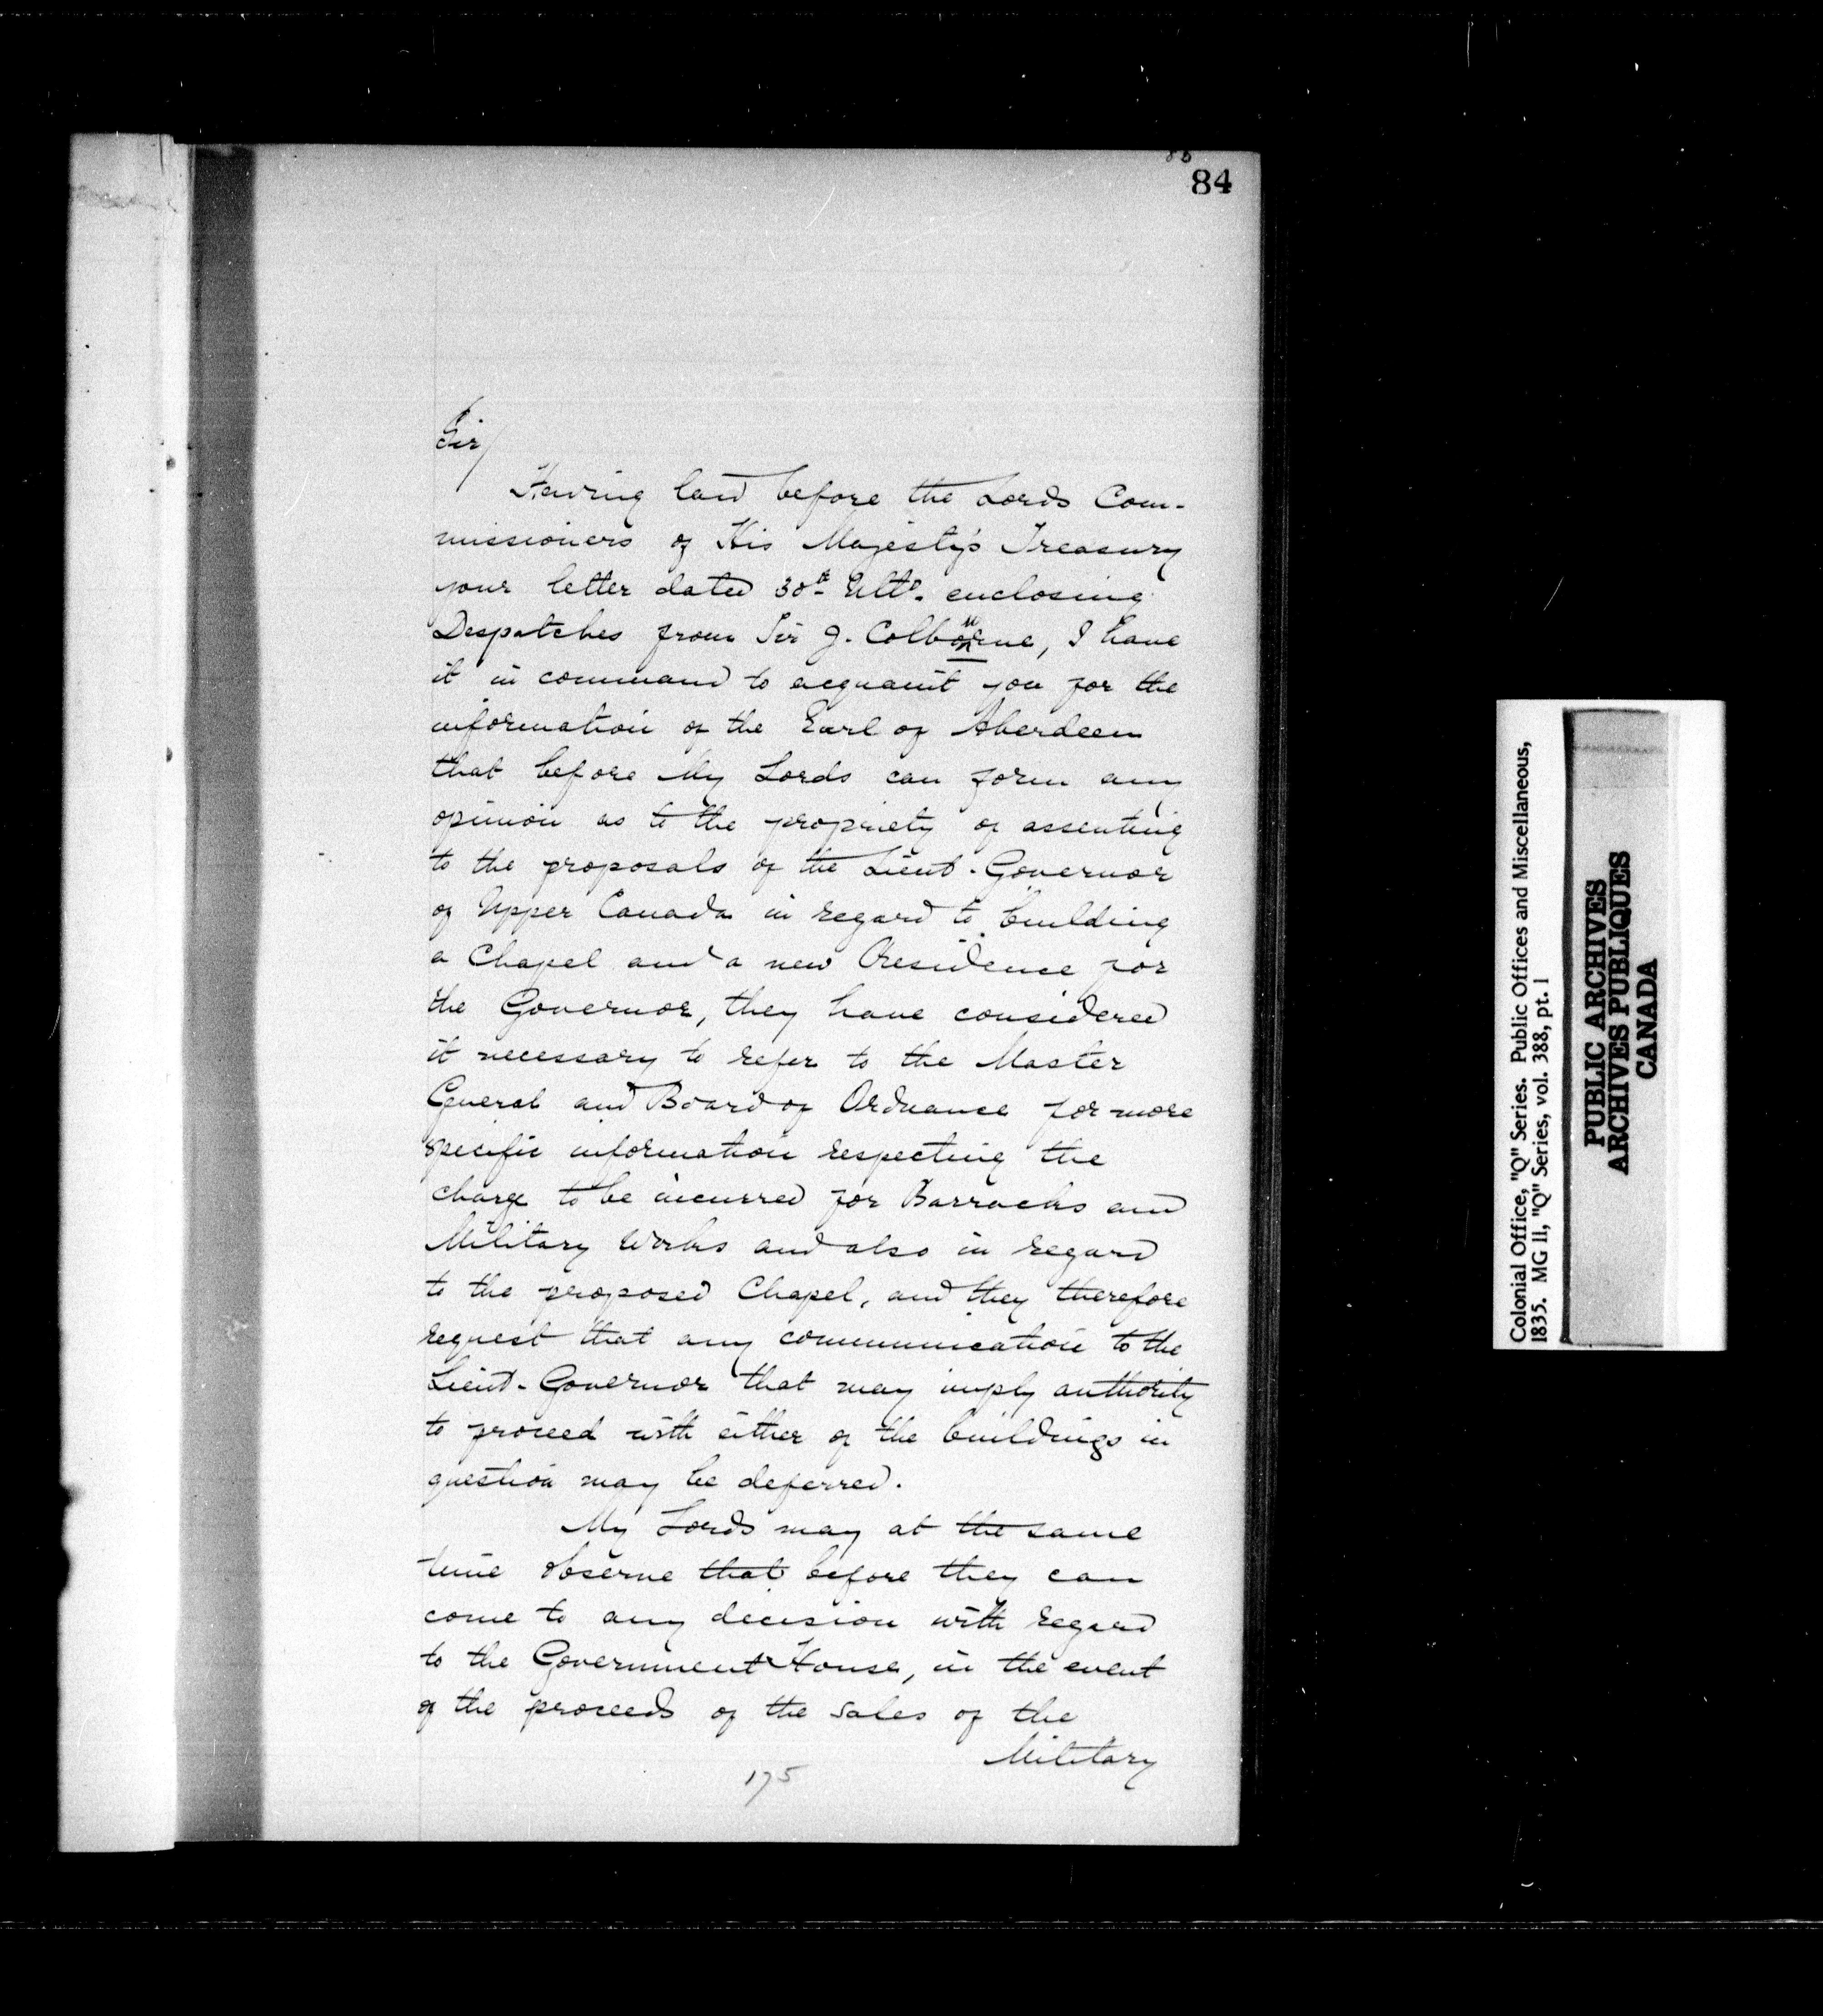 84
Sir/
Having laid before the Lords Com-
missioners of His Majesty's Treasury
your letter dated 30th Ulto. enclosing
Despatches from Sir J. Colborne, I have
it in command to acquaint you for the
information of the Earl of Aberdeen
that before My Lords can form any
opinion as to the propriety of assenting
to the proposals of the Lieut.-Governor
of Upper Canada in regard to building
a Chapel and a new Residence for
the Governor, they have considered
it necessary to refer to the Master
General and Board of Ordnance for more
specific information respecting the
charge to be incurred for Barracks and
Military Works and also in regard
to the proposed Chapel, and they therefore
request that any communication to the
Lieut-Governor that may imply authority
to proceed with either of the buildings in
question may be deferred.
My Lords may at the same
time observe that before they can
come to any decision with regard
to the Government House, in the event
of the proceeds of the sales of the
Military
175
Colonial Office, "Q" Series. Public Offices and Miscellaneous,
1835. MG 11, "Q" Series, vol. 388, pt. 1
PUBLIC ARCHIVES
ARCHIVES PUBLIQUES
CANADA